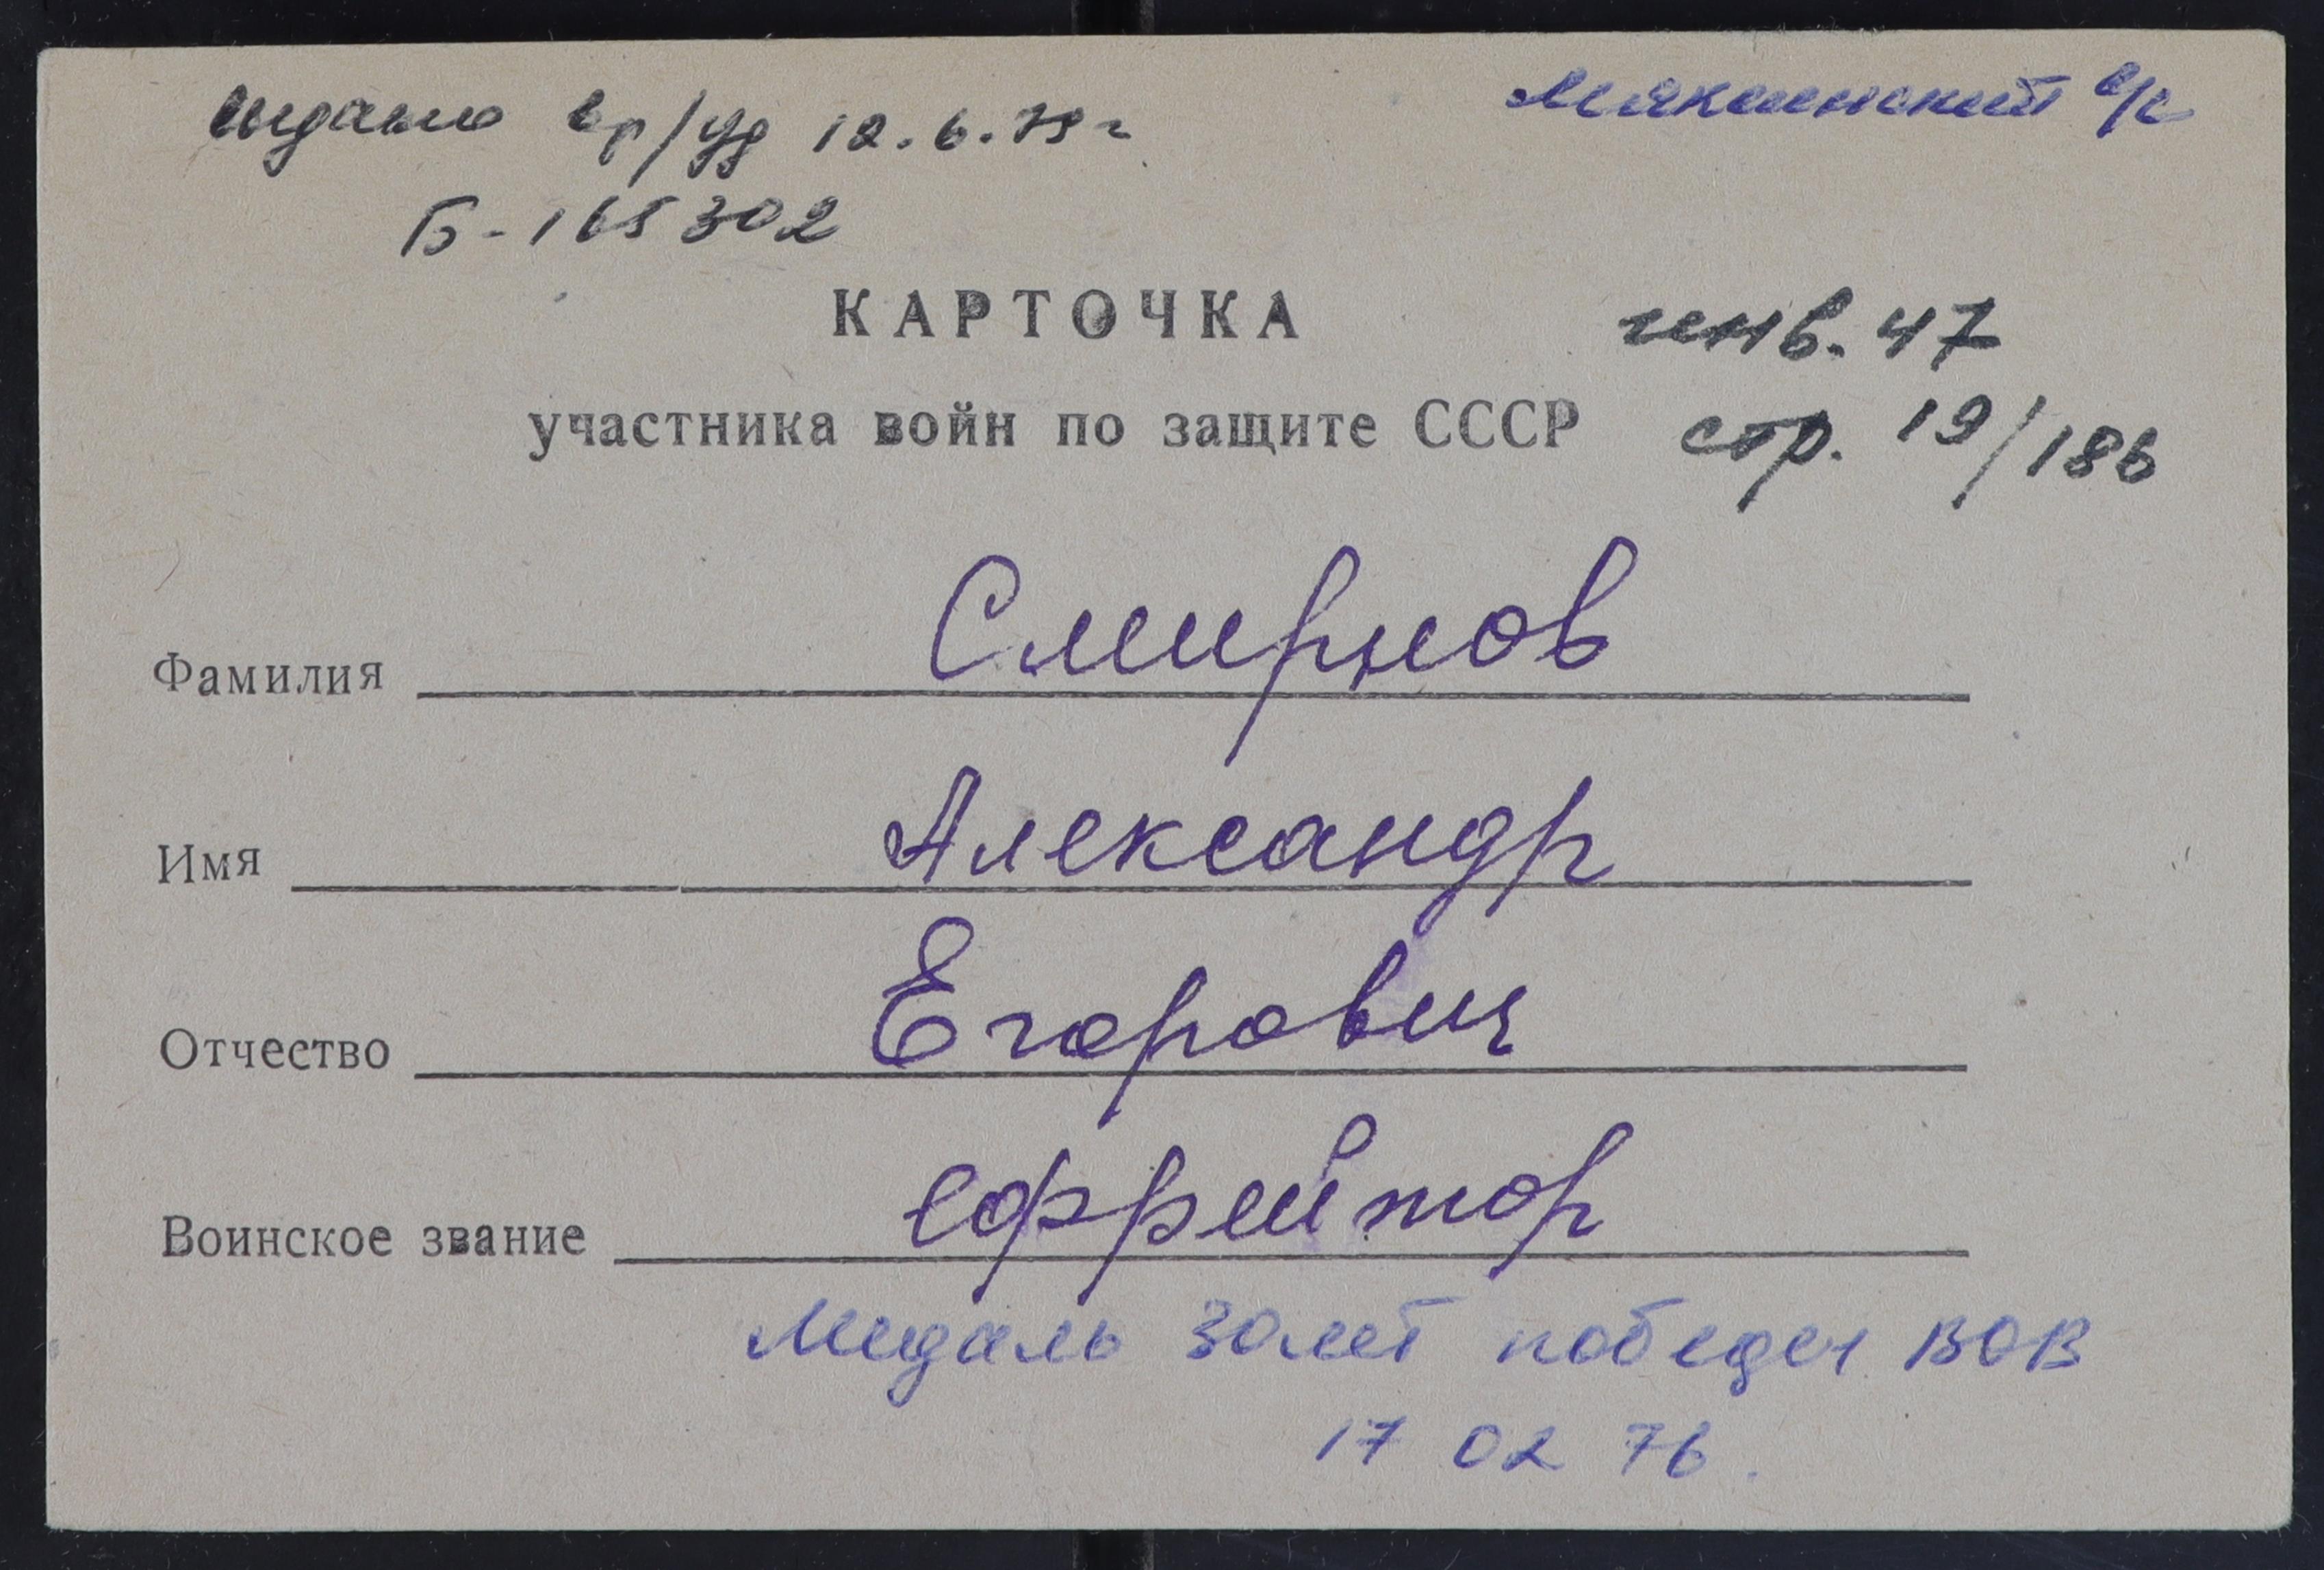 выдано вр/уд 12.6.79 г
Мякишинский с/с
Б-165302
КАРТОЧКА
инв. 47
участника войн по защите СССР
стр. 19/186
Фамилия Смирнов
Имя Александр
Отчество Егорович
Воинское звание ефрейтор
Медаль 30 лет победы ВОВ
17 02 76.